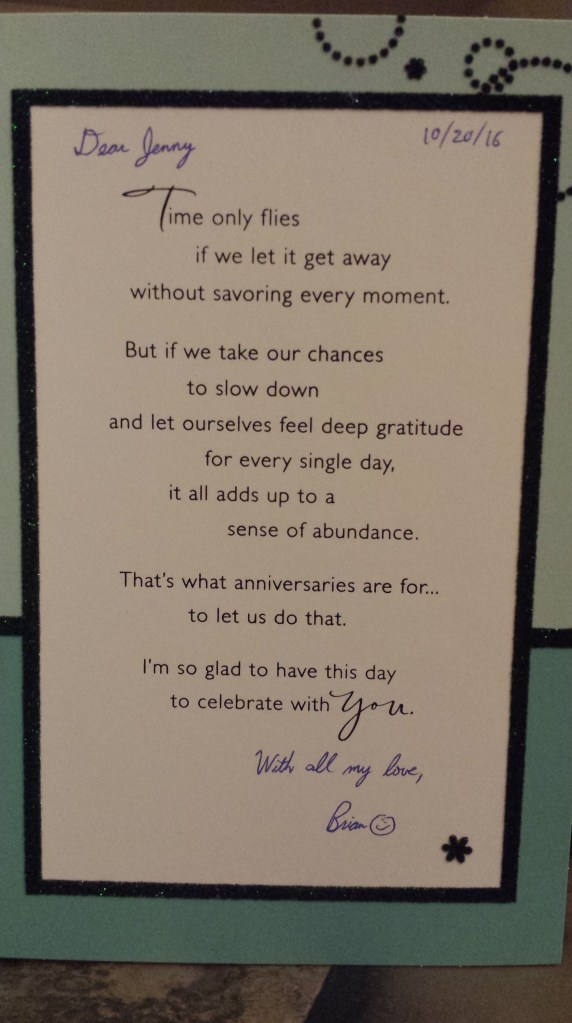 Dear Jenny 10/20/16
Time only flies
if we let it get away
without savoring every moment.
But if we take our chances
to slow down
and let ourselves feel deep gratitude
for every single day,
it all adds up to a
sense of abundance.
That's what anniversaries are for...
to let us do that.
I'm so glad to have this day
to celebrate with you.
With all my love,
Brian ☺